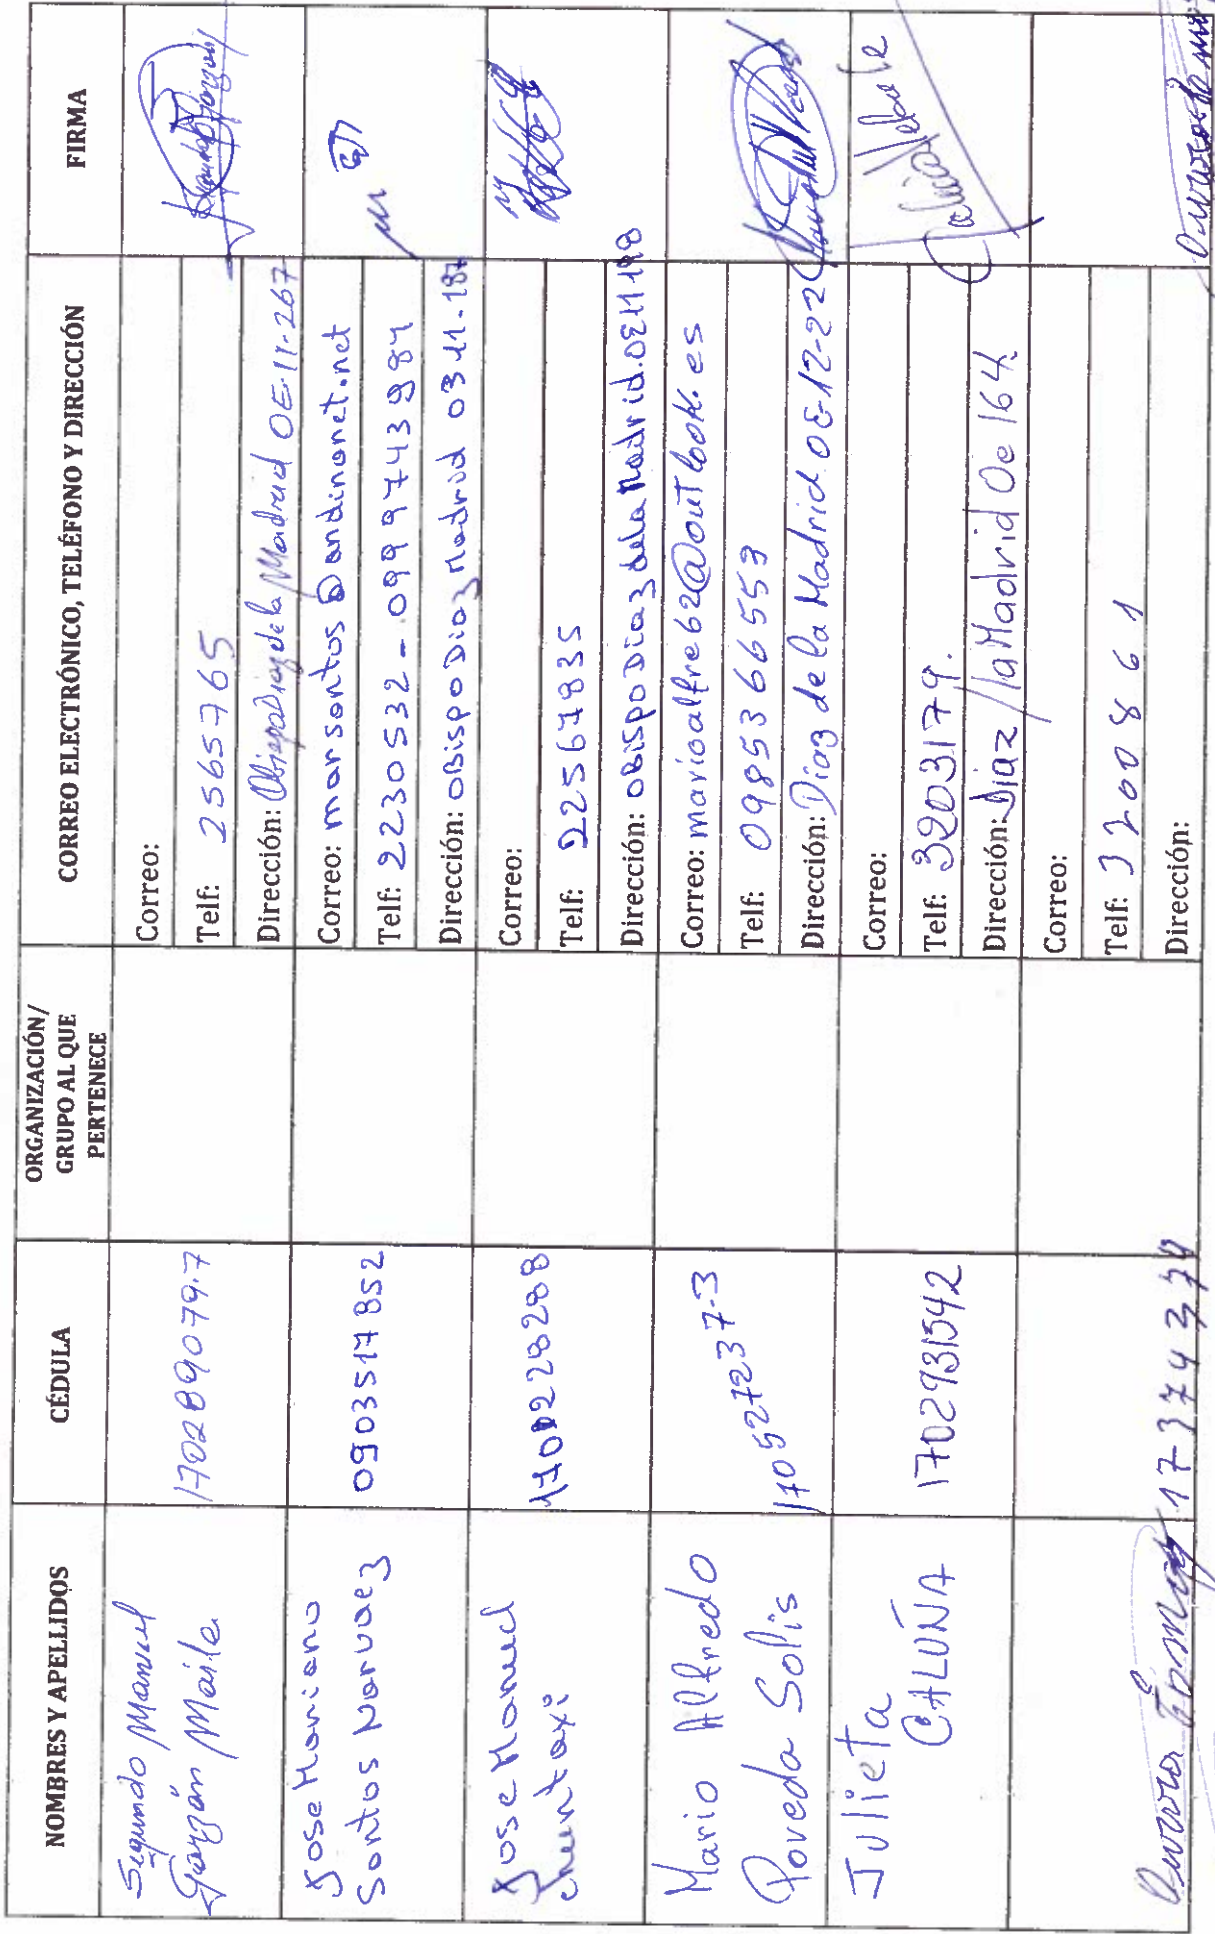 NOMBRES Y APELLIDOS
CÉDULA
ORGANIZACIÓN/
GRUPO AL QUE
PERTENECE
CORREO ELECTRÓNICO, TELÉFONO Y DIRECCIÓN
FIRMA
Segundo Manuel
Garzón Maila
170289079-7
Correo:
Telf: 2565765
Dirección: Obispo Diaz de la Madrid OE-11-267
Jose Mariano
Santos Narvaez
0903517852
Correo: marsantos@andinanet.net
Telf: 2230532 - 0999743984
Dirección: OBispo Diaz Madrid 03 11-187
Jose Manuel
Correo:
Telf:
Dirección: OBispo Diaz de la Madrid. OE11198
Mario Alfredo
Poveda Solis
170527237-3
Correo: marioalfre62@outlook.es
Telf: 0985366553
Dirección: Díaz de la Madrid OE-12-22
Julieta
CALUÑA
1702931542
Correo:
Telf: 3203179.
Dirección: Diaz /la Madrid Oe 164
Correo:
Telf: 3200861
Dirección: